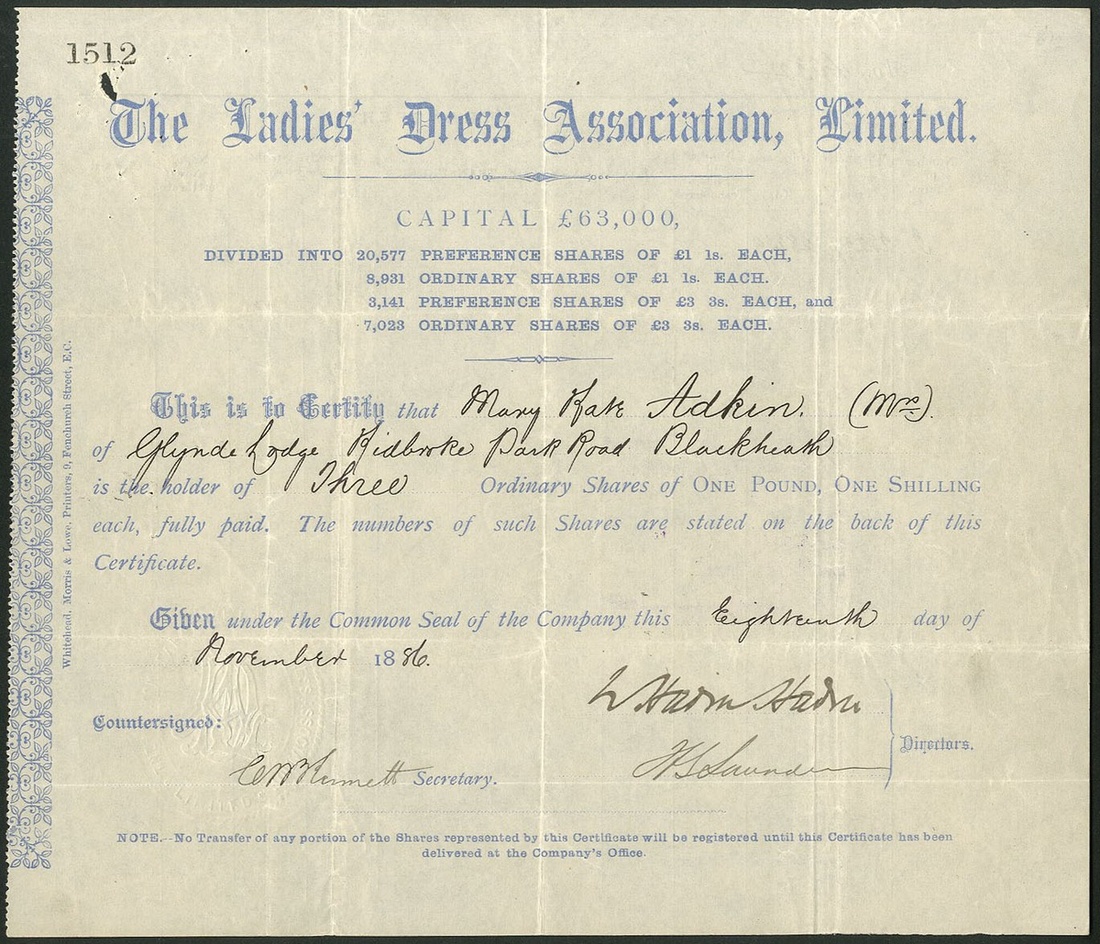 1512
The Ladies' Dress Association, Limited.
CAPITAL £63,000,
DIVIDED INTO 20,577 PREFERENCE SHARES OF £1 1s. EACH,
8,931 ORDINARY SHARES OF £1 1s. EACH.
3,141 PREFERENCE SHARES OF £3 3s. EACH, and
7,023 ORDINARY SHARES OF £3 3s. EACH.
This is to Certify that Mary Kate Adkin. (Mrs).
of Glynde Lodge Kidbroke Park Road Blackheath
is the holder of Three Ordinary Shares of ONE POUND, ONE SHILLING
each, fully paid. The numbers of such Shares are stated on the back of this
Certificate.
Given under the Common Seal of the Company this Eighteenth day of
November 1886.
Countersigned:
Directors.
Secretary.
NOTE.—No Transfer of any portion of the Shares represented by this Certificate will be registered until this Certificate has been
delivered at the Company's Office.
Whitehead, Morris & Lowe, Printers, 9, Fenchurch Street, E.C.